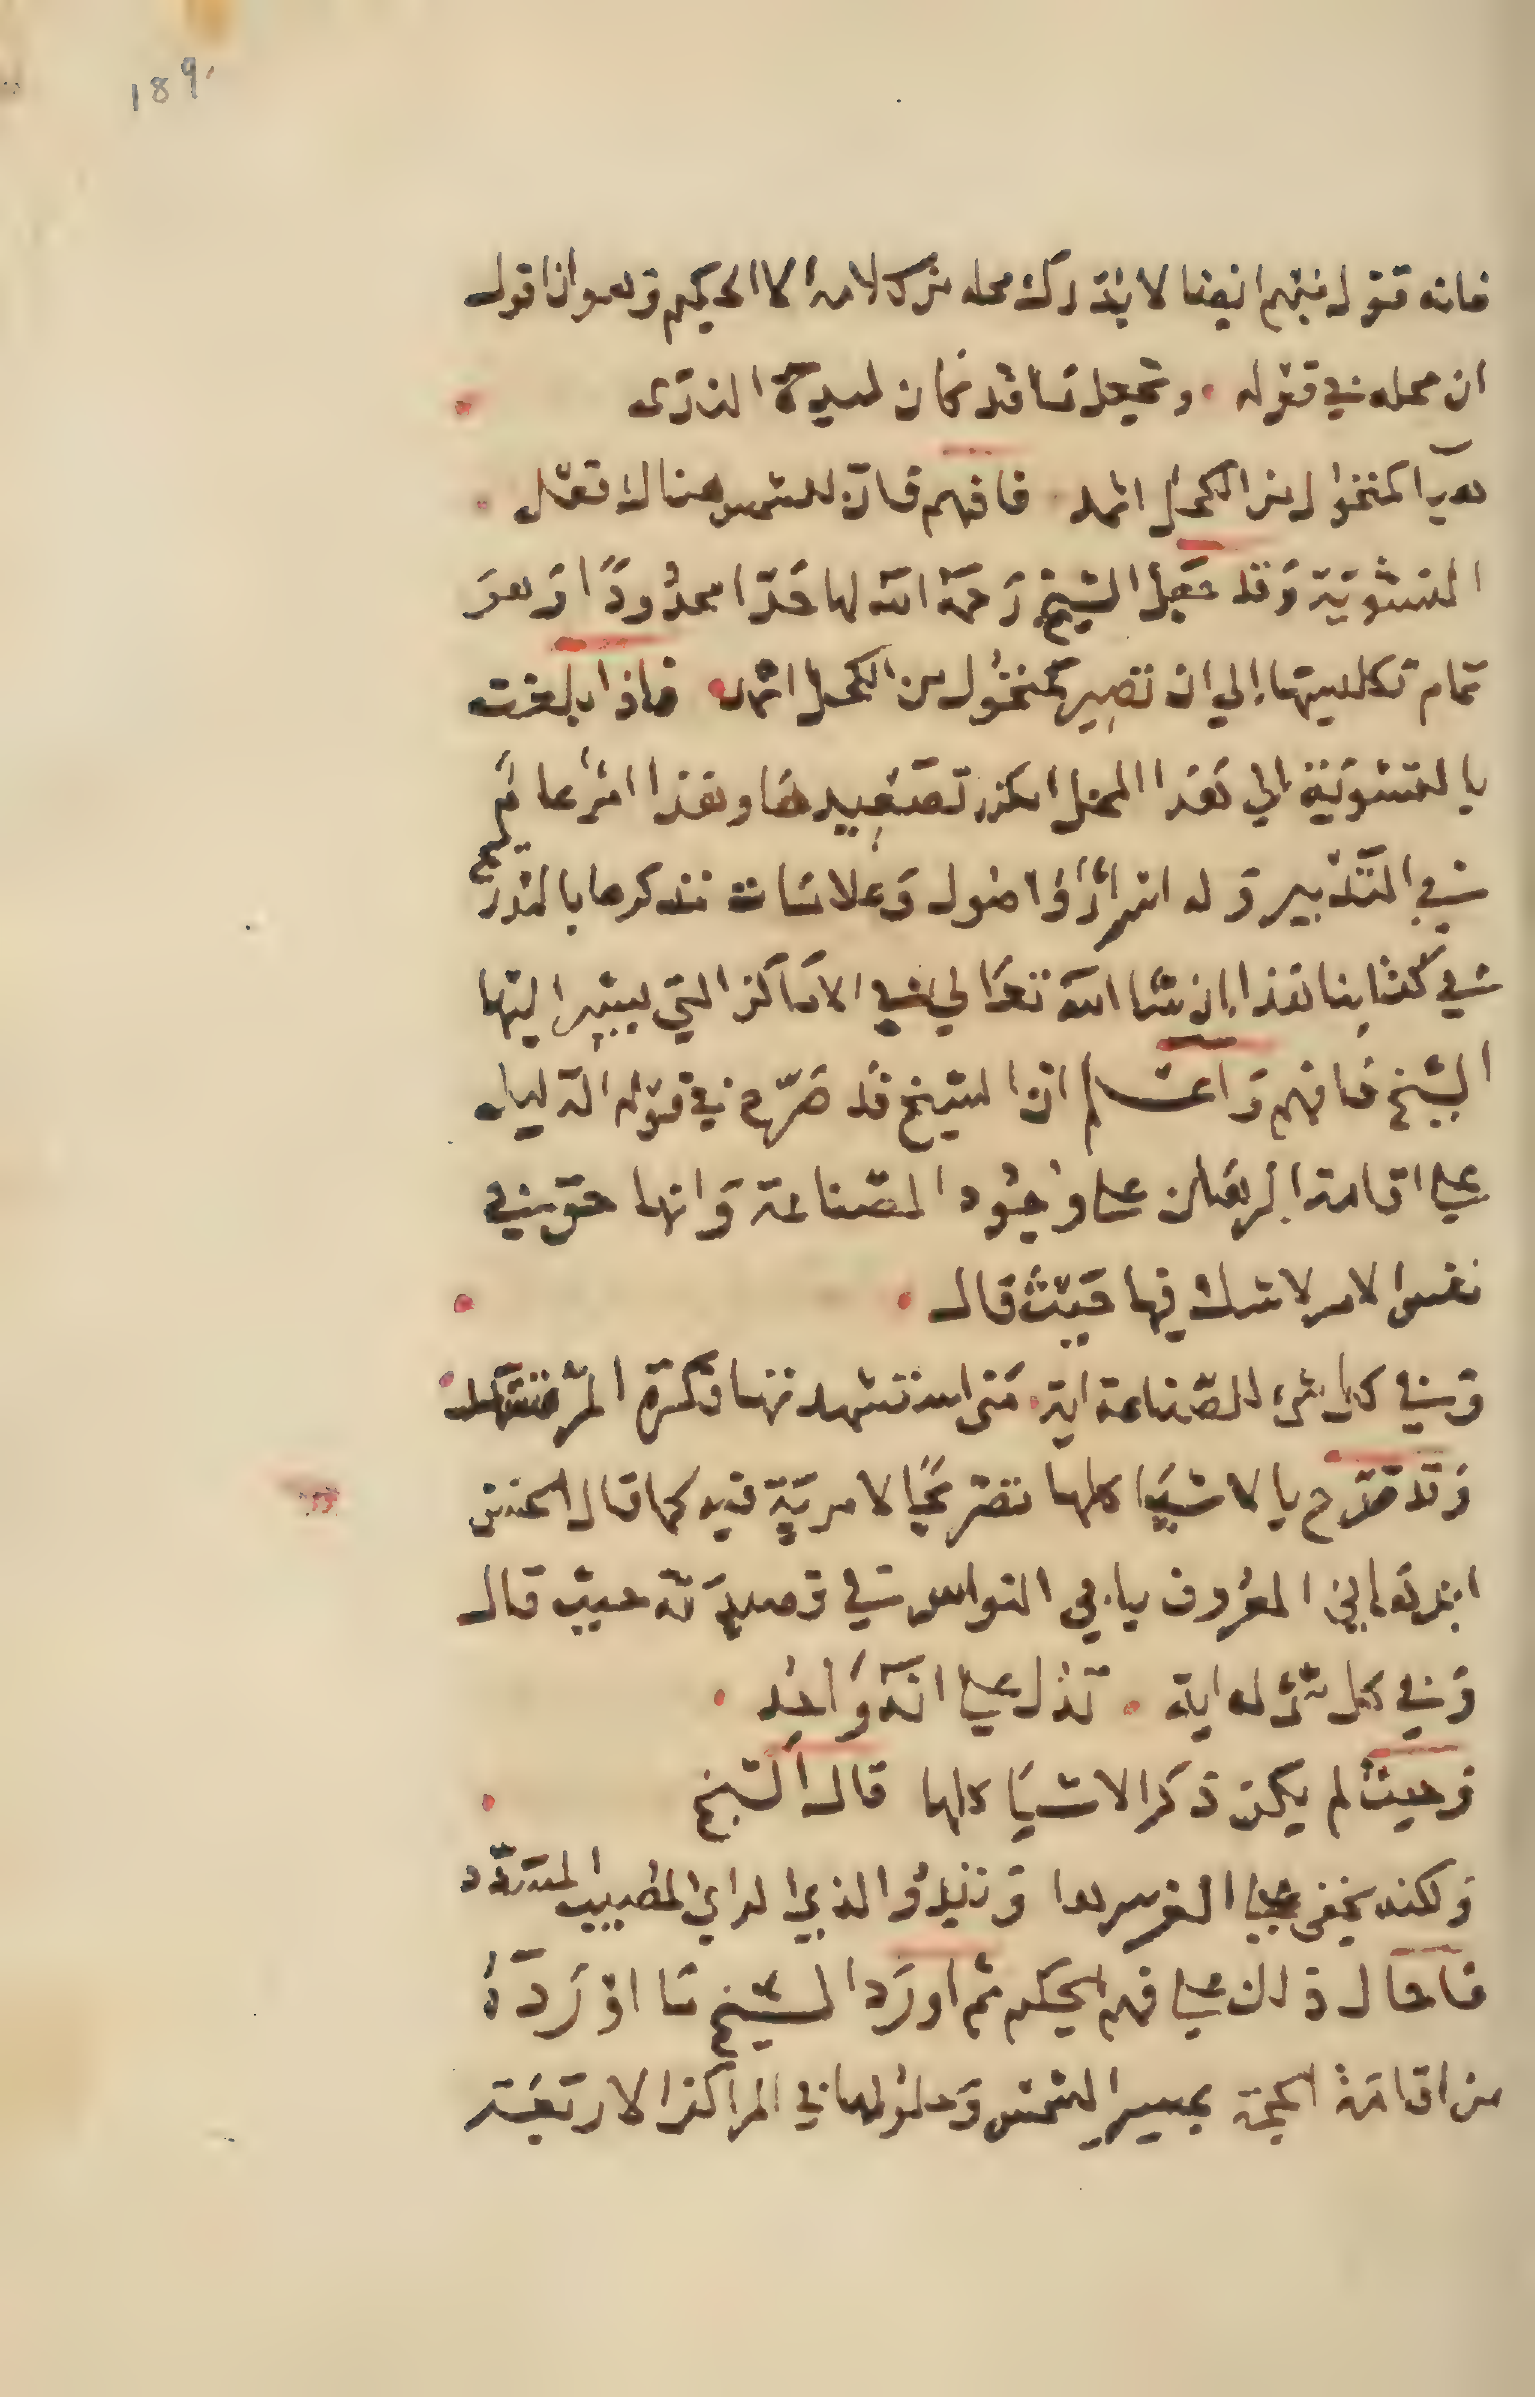 189
فانه قول مبهم ايضا لا يدرك محله من كلامه الا الحكيم وهو ان اقول
ان محله في قوله ، وتجعل ما قد كان لبدة الندى
هبا كمنخول من الكحل اثمد فافهم فان للشمس هناك تعمل
التشوية وقد جعل الشيخ رحمة الله لها حدا محدودًا وهو
تمام تكليسها الي ان تصير كمنخول من الكحل اثمد فاذا بلغت
بالتشوية الي هذا المحل امكن تصعيدها وهذا امر عظيم
في التدبير وله اسرار واصول وعلامات نذكرها بالمدرر
في كتابنا هذا ان شا الله تعالي في الاماكن التي يشير اليها
الشيخ فافهم واعلم ان الشيخ قد صرح في قوله الدليل
علي اقامة البرهان علي وجود الصناعة وانها حق في
نفس الامر لا شك فيها حيث قال
وفي كل شي للصناعة اية ، متي استشهدتها فكرة المرء تشهد
وقد صرح بالاشيا كلها تصريحا لا مرية فيه كما قال الحسن
ابن هاني المعروف بابي النواس في قصيدته حيث قال
وفي كل شي له اية ، تدل علي انه واحد
وحيث لم يكن ذكر الاشيا كلها قال الشيخ
ولكنه يخفى علي الغر سرها وتبدو الذي الراي المصيب المسدد
فاحال ذلك علي فهم الحكيم ثم اورد الشيخ ما اورده
من اقامة الحجة بمسير الشمس وحلولها في المراكز الاربعة